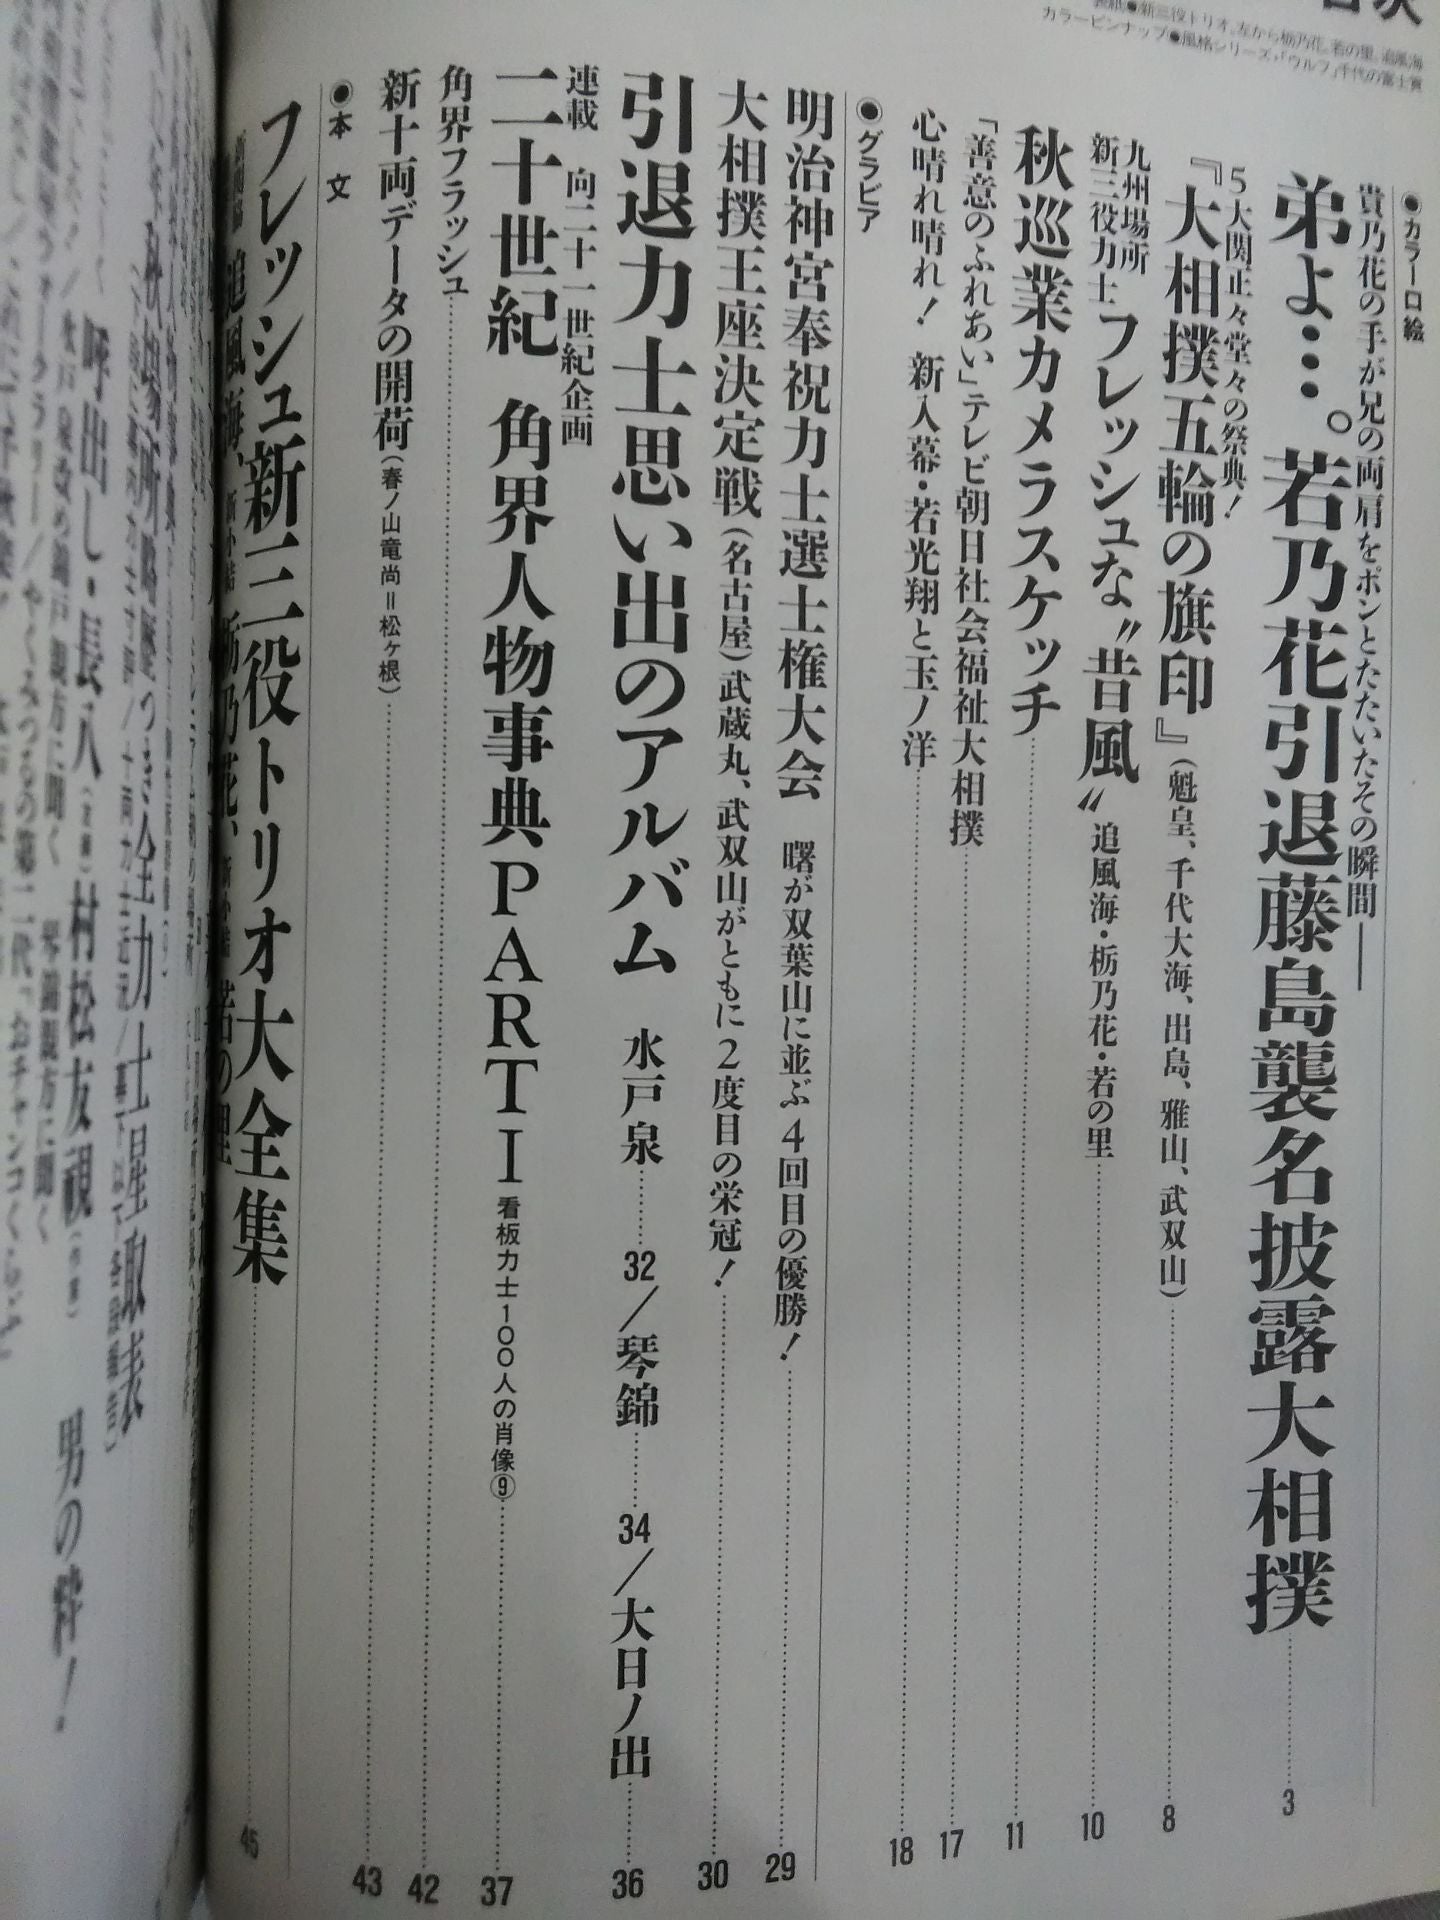 目次
表紙●新三役トリオ。左から栃乃花。若の里。追風海
カラーピンナップ●風格シリーズ・「ウルフ」千代の富士貢
●カラー口絵
貴乃花の手が兄の両肩をポンとたたいたその瞬間――
弟よ…。若乃花引退藤島襲名披露大相撲 3
5大関正々堂々の祭典!
『大相撲五輪の旗印』(魁皇、千代大海、出島、雅山、武双山) 8
九州場所
新三役力士 フレッシュな〝昔風〟 追風海・栃乃花・若の里 10
秋巡業カメラスケッチ 11
「善意のふれあい」テレビ朝日社会福祉大相撲 17
心晴れ晴れ! 新入幕・若光翔と玉ノ洋 18
●グラビア
明治神宮奉祝力士選士権大会 曙が双葉山に並ぶ4回目の優勝! 29
大相撲王座決定戦(名古屋)武蔵丸、武双山がともに2度目の栄冠! 30
引退力士思い出のアルバム 水戸泉 32/琴錦 34/大日ノ出 36
連載 向二十一世紀企画
二十世紀 角界人物事典PARTⅠ 看板力士100人の肖像⑨ 37
角界フラッシュ 42
新十両データの開荷(春ノ山竜尚=松ヶ根) 43
●本文
フレッシュ新三役トリオ大全集 45
追風海、新小結 栃乃花、 若の里
秋場所略歴つき全力士星取表
呼出し・長八 村松友視 男の粋!